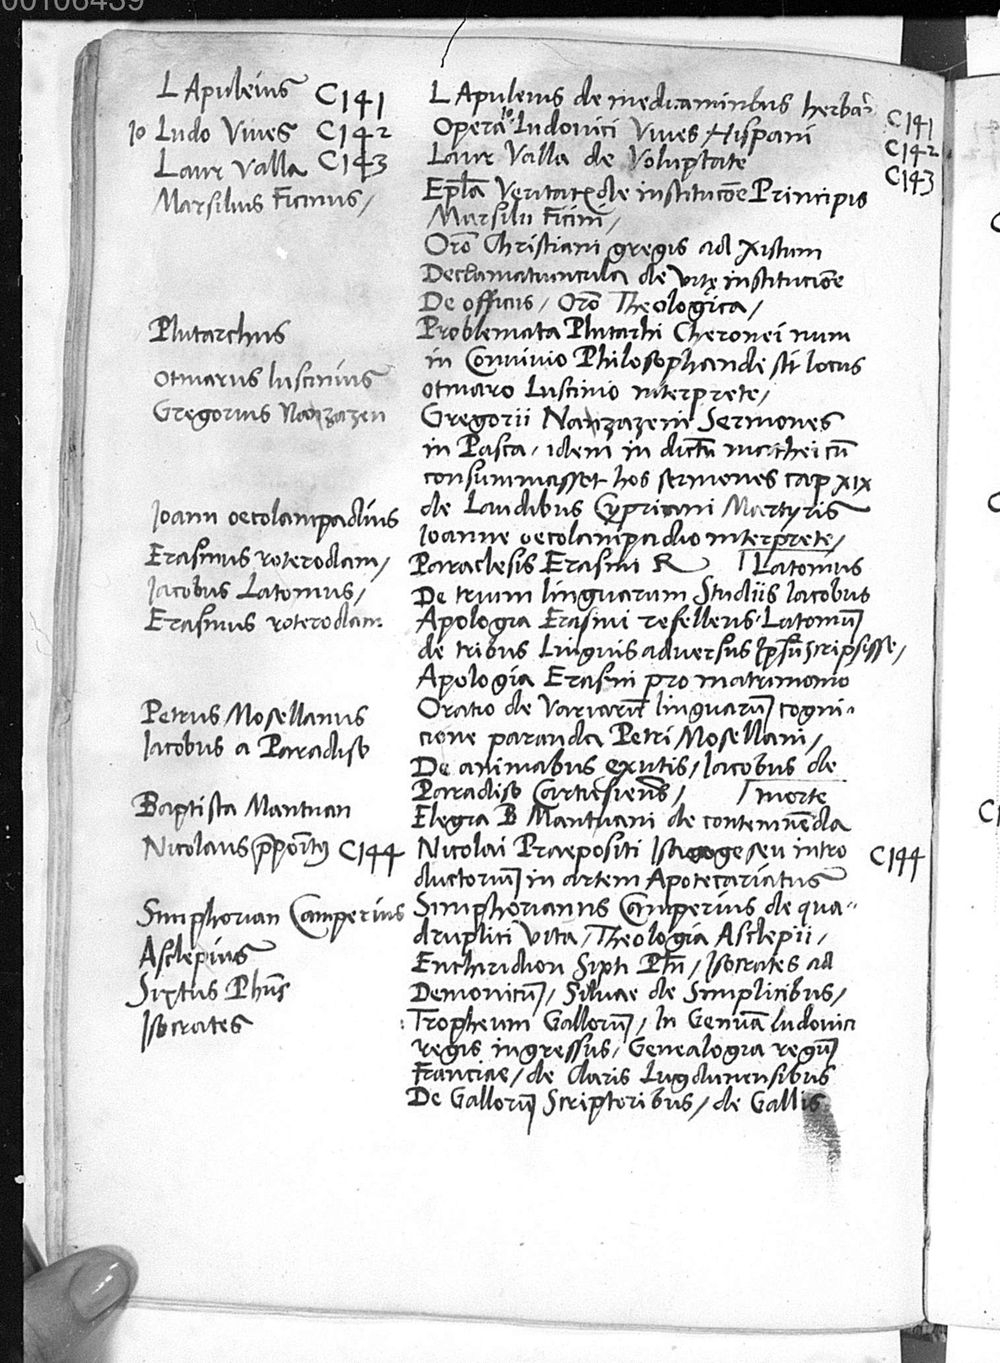 00106439
L Apuleius C141 L Apuleius de medicaminibus herbar C141
Io Ludo Vives C142 Opera Io Ludovici Vives Hispani C142
Laur Valla C143 Laur Valla de Voluptate C143
Marsilius Ficinus / Epla Veritatis de institucõe Principis
Marsilii Ficini /
Orõ Christiani gregis ad Xistum
Declamatiuncula de vitę instituciõe
De officiis / Orõ Theologica /
Plutarchus Problemata Plutarhi Cheronei num
in Convivio Philosophande sit locus
Otmarus luscinius otmaro Luscinio interprete /
Gregorius Nanzazen Gregorii Nanzazeni Sermones
in Pasca, idem in dictũ mathei cũ
consummasset hos sermones cap xix
de Laudibus Cypriani Martyris
Joann oecolampadius Joanne oecolampadio interprete /
Erasmus roterodam / Paraclesis Erasmi R Latomus
Jacobus Latomus / De trium linguarum Studiis Iacobus
Erasmus roterodam Apologia Erasmi refellens Latomũ
de tribus Linguis adversus ipsũ scripsisse /
Apologia Erasmi pro matrimonio
Petrus Mosellanus Oratio de Variarũ linguarũ cogni-
Iacobus a Paradiso cione paranda Petri Mosellani /
De animabus exutis / Iacobus de
Paradiso Cartusiensis / morte
Baptista Mantuan Elegia B Mantuani de contemnẽda
Nicolaus p̃põitq C144 Nicolai Praepositi Isagoge seu intro C144
ductoriũ in artem Apotecariatus
Simphorian Camperius Simphorianus Camperius de qua-
drupliti vita / Theologia Asclepii /
Asclepius Enchiridion Sixti Phi / Isocrates ad
Sixtus Phũs Demonicũ / Siluae de Simplicibus /
Isocrates Tropheum Gallorũ / In Genuã ludovici
regis ingressus / Genealogia regũ
Franciae / de claris Lugdunensibus
De Gallorũ Scriptoribus / de Gallis